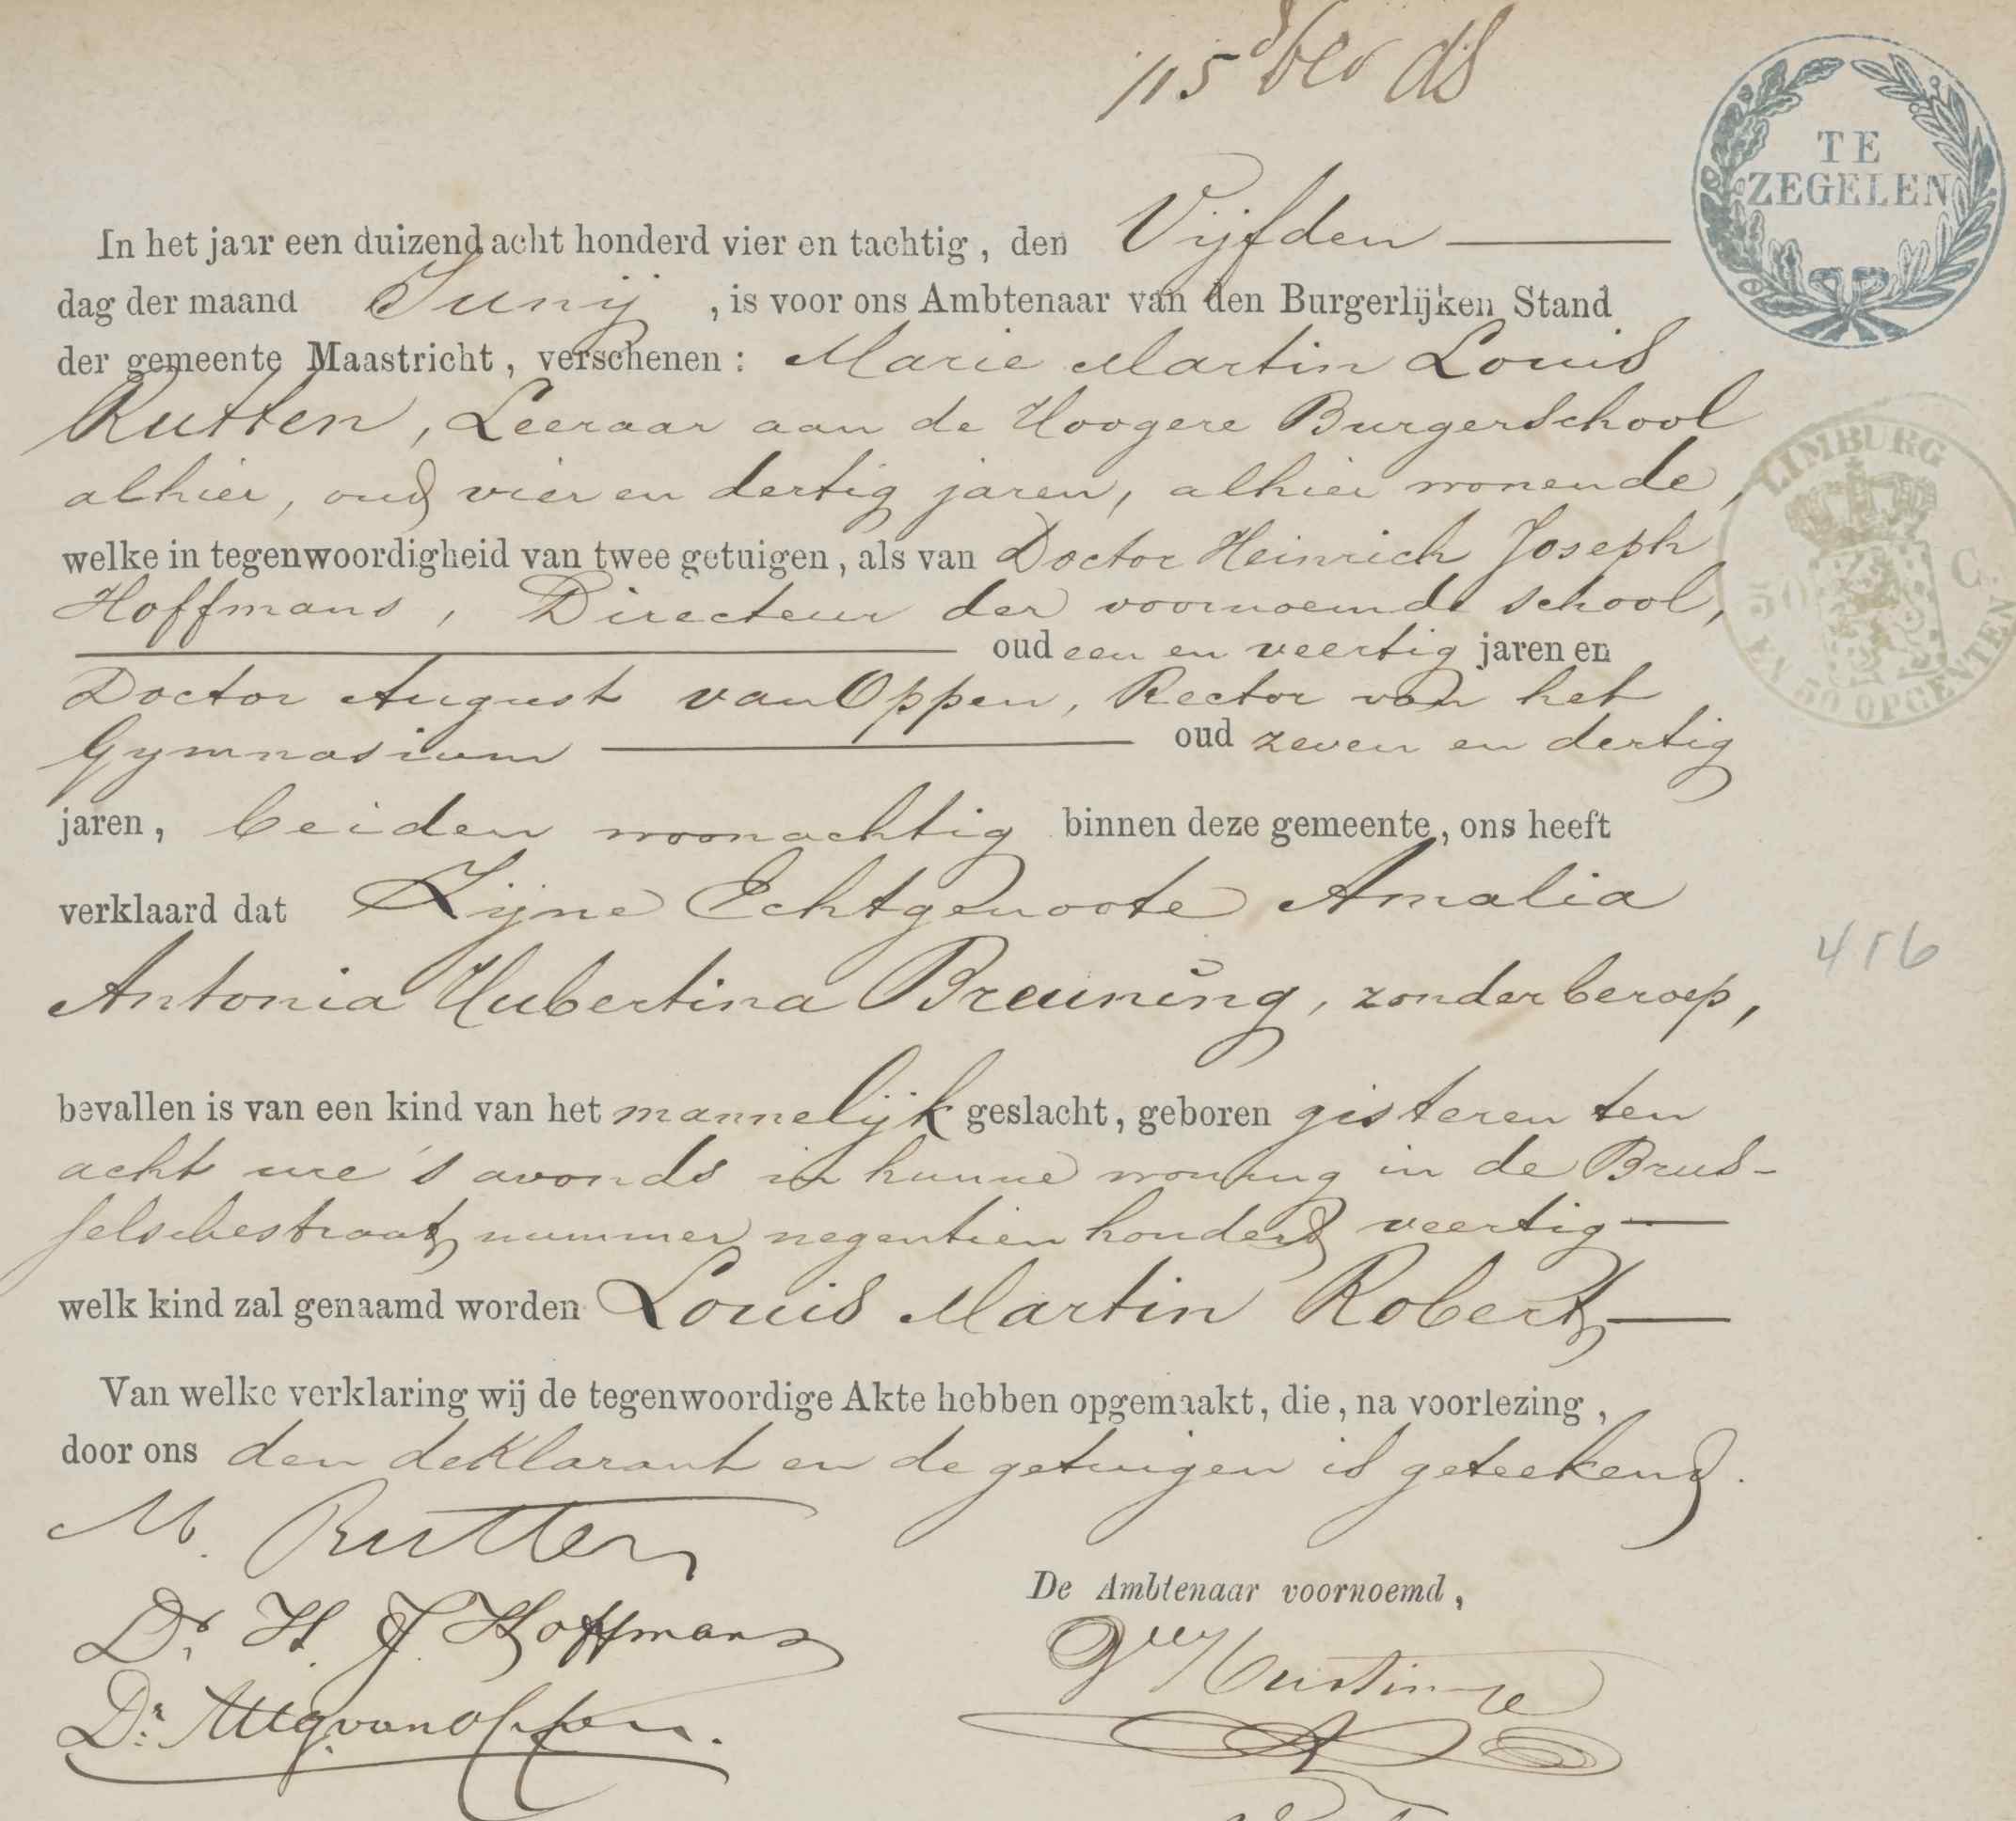 TE
ZEGELEN
In het jaar een duizend acht honderd vier en tachtig, den Vijfden
dag der maand Junij, is voor ons Ambtenaar van den Burgerlijken Stand
der gemeente Maastricht, verschenen: Marie Martin Louis
Rutten, Leeraar aan de Hoogere Burgerschool
alhier, oud vier en dertig jaren, alhier wonende,
welke in tegenwoordigheid van twee getuigen, als van Doctor Heinrich Joseph
Hoffmans, Directeur der voornoemde school,
oud een en veertig jaren en
Doctor August van Oppen, Rector van het
Gymnasium oud zeven en dertig
jaren, beiden woonachtig binnen deze gemeente, ons heeft
verklaard dat Zijne Echtgenoote Amalia
Antonia Hubertina Breuning, zonder beroep,
bevallen is van een kind van het mannelijk geslacht, geboren gisteren ten
acht ure 's avonds in hunne woning in de Brus-
selschestraat nummer negentien honderd veertig
welk kind zal genaamd worden Louis Martin Robert
Van welke verklaring wij de tegenwoordige Akte hebben opgemaakt, die, na voorlezing,
door ons den deklarant en de getuigen is geteekend.
M. Rutten
Dr. H. J. Hoffmans
De Ambtenaar voornoemd,
Dr. Aug. van Oppen.
LIMBURG
50 C.
EN 50 OPCENTEN
416